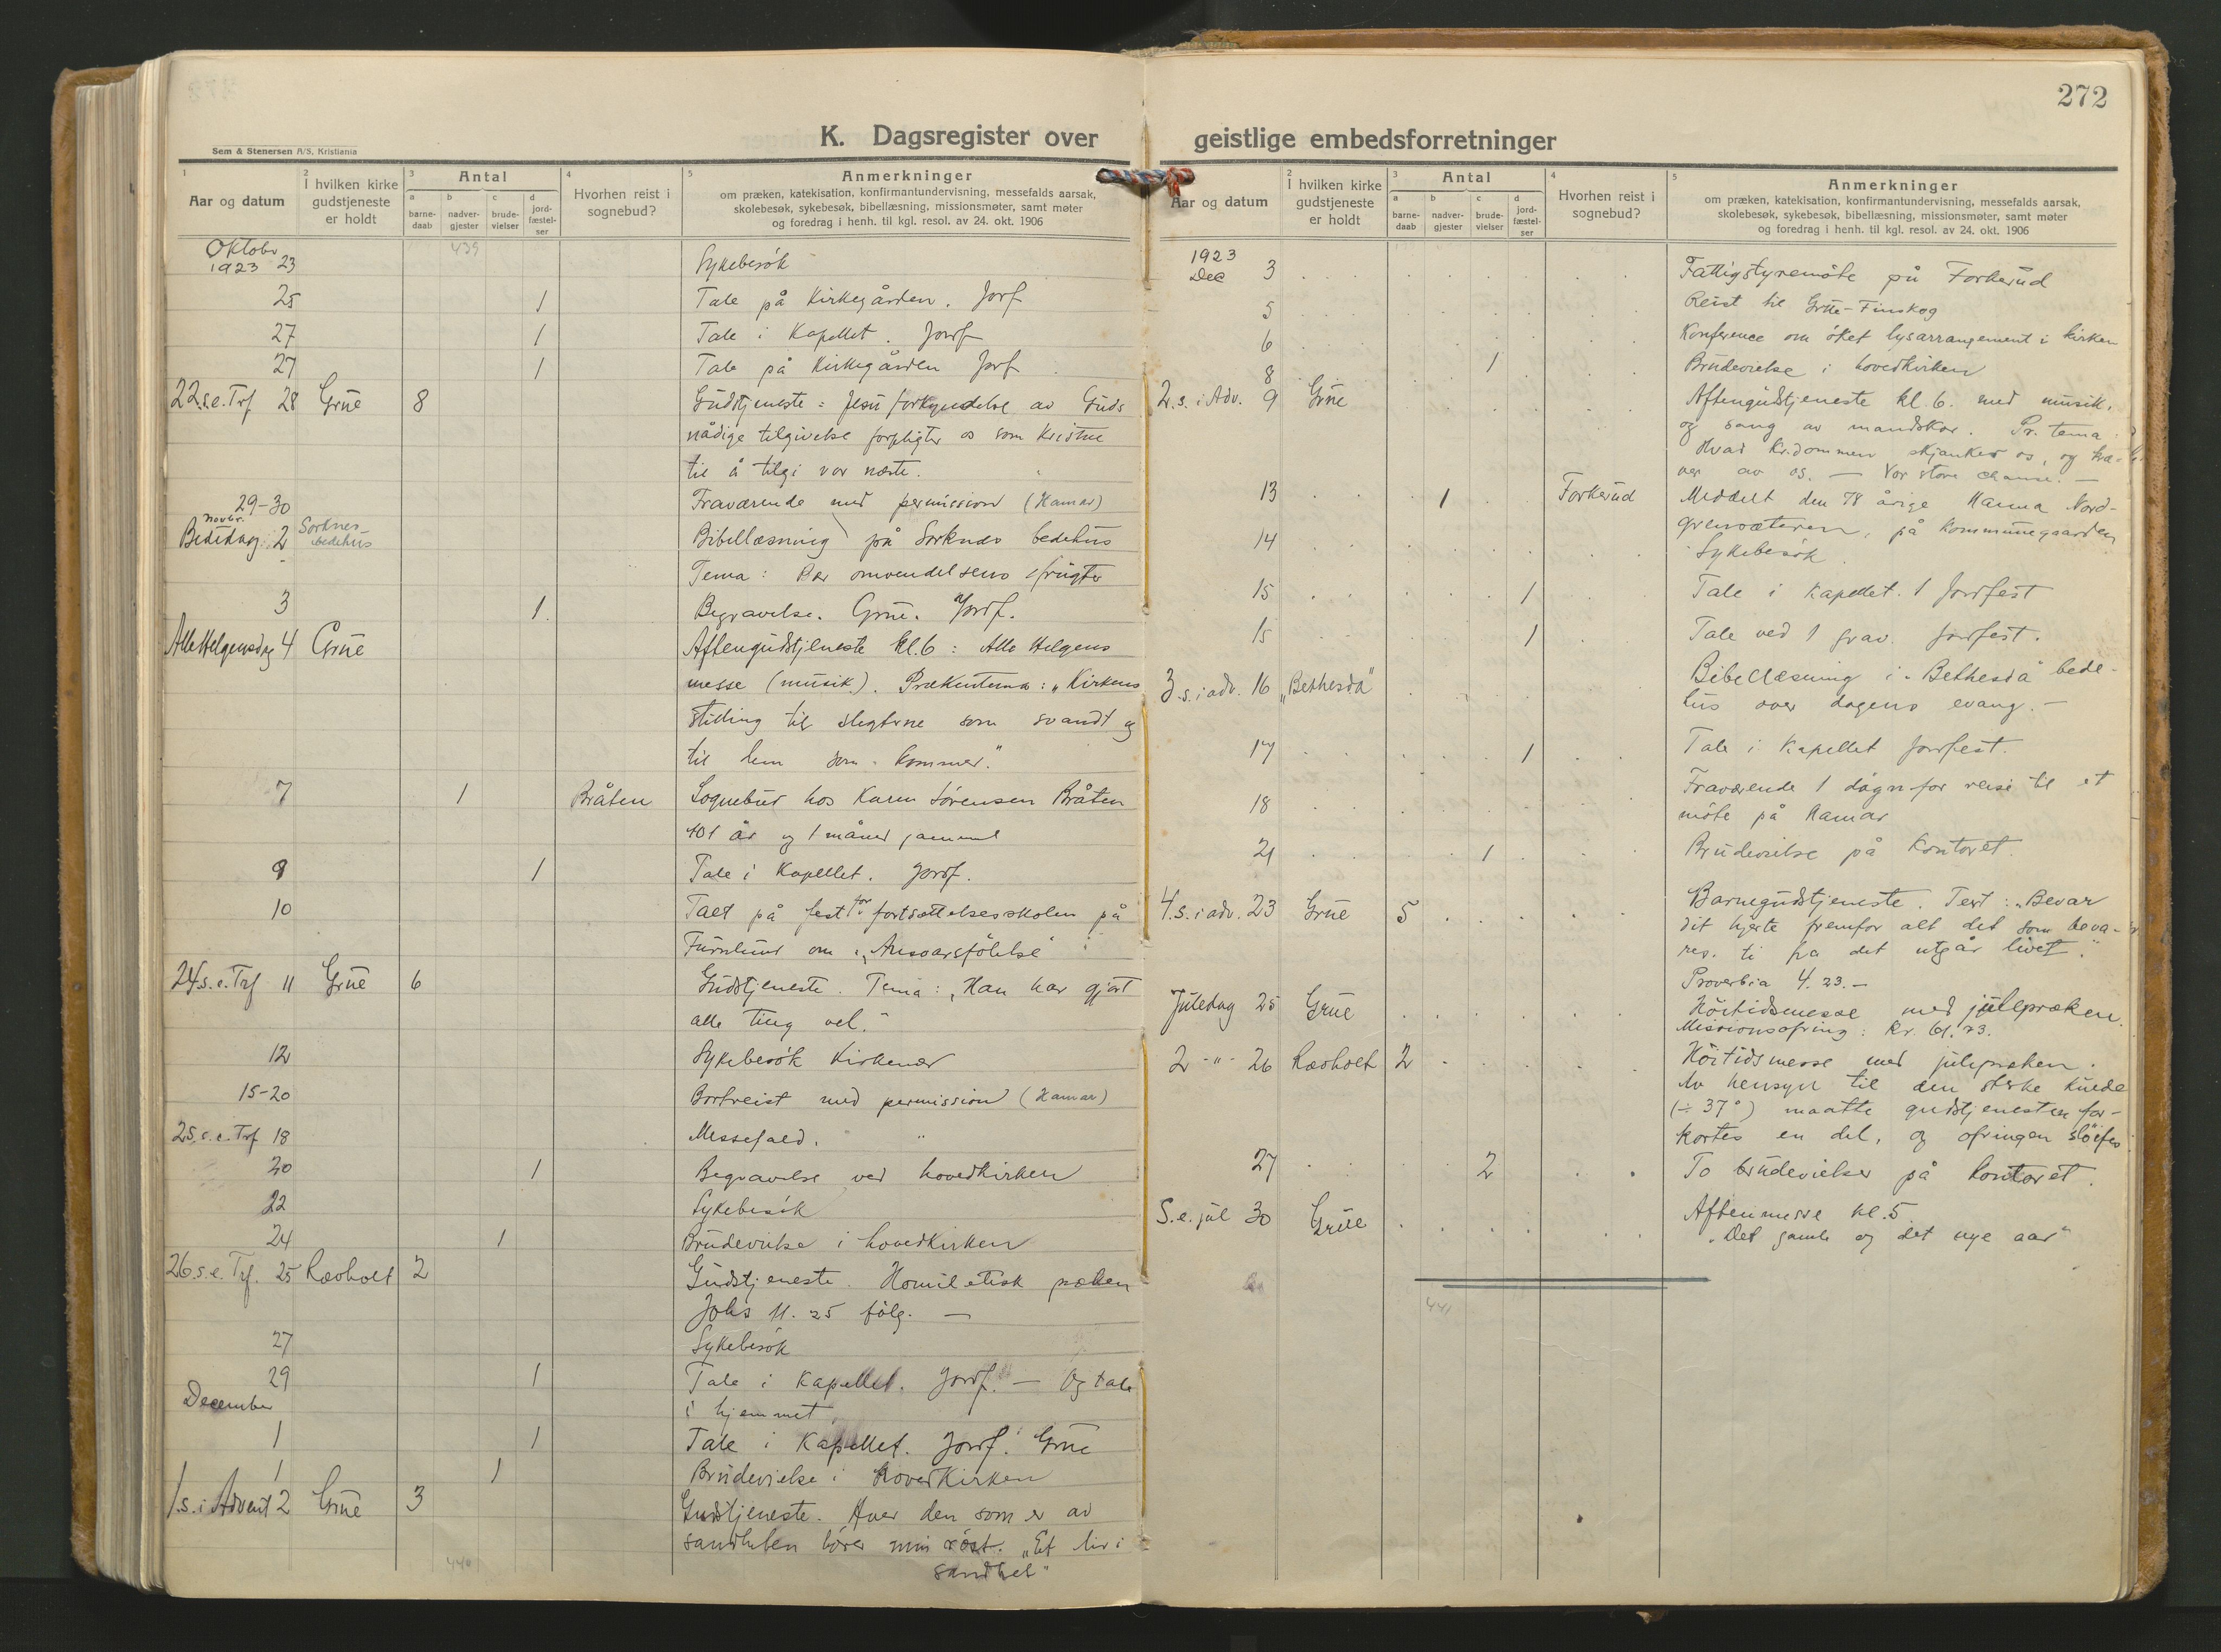 272
K. Dagsregister over geistlige embedsforretninger
Sem & Stenersen A/S, Kristiania
1 Aar og datum
2 I hvilken kirke gudstjeneste er holdt
3 Antal
a barnedaab
b nadvergjester
c brudevielser
d jordfæstelser
4 Hvorhen reist i sognebud?
5 Anmerkninger
om præken, katekisation, konfirmantundervisning, messefalds aarsak,
skolebesøk, sykebesøk, bibellæsning, missionsmøter, samt møter
og foredrag i henh. til kgl. resol. av 24. okt. 1906
439
Oktobr
1923 23 Sykebesök
25 1 Tale på Kirkegården. Jorf
27 1 Tale i Kapellet. Jordf
27 1 Tale på Kirkegården Jorf
22.s.e.Trf 28 Grue 8 Gudstjeneste: Jesu forkyndelse av Guds
nådige tilgivelse forpligter os som Kristne
til å tilgi vor næste.
29-30 Fraværende med permission (Hamar)
novbr.
Bededag 2 Sorknes bedehus Bibellæsning på Sorknes bedehus
Tema: Per omvendelsens frugter
3 1 Begravelse. Grue. Jordf.
Alle Helgensdag 4 Grue Aftengudstjeneste kl.6: Alle Helgens
messe (musik). Prækentema: "Kirkens
stilling til slegterne som svandt og
til dem som kommer."
7 1 Bråten Sognebud hos Karen Sörensen Bråten
101 år og 1 måned gammel
9 1 Tale i Kapellet. Jordf.
10 Talt på fest for fortsættelsesskolen på
Furulund om "Ansvarsfölelse"
24.s.e.Trf 11 Grue 6 Gudstjeneste. Tema: "Han har gjort
alle ting vel."
12 Sykebesök Kirkenær
15-20 Bortreist med permission (Hamar)
25.s.e.Trf 18 Messefald. "
20 1 Begravelse ved hovedkirken
22 Sykebesök
24 1 Brudevielse i hovedkirken
26.s.e.Trf. 25 Revholt 2 Gudstjeneste. Homiletisk præken
Johs 11. 25 fölg. —
27 Sykebesök
29 1 Tale i Kapellet. Jordf. — Og tale
i hjemmet
December
1 1 Tale i Kapellet. Jordf. Grue
1 1 Brudevielse i hovedkirken
1.s.i Advent 2 Grue 3 Gudstjeneste. Hver den som er av
sandheten hörer min röst. "Et liv i
sandhet"
440
1 Aar og datum
2 I hvilken kirke gudstjeneste er holdt
3 Antal
a barnedaab
b nadvergjester
c brudevielser
d jordfæstelser
4 Hvorhen reist i sognebud?
5 Anmerkninger
om præken, katekisation, konfirmantundervisning, messefalds aarsak,
skolebesøk, sykebesøk, bibellæsning, missionsmøter, samt møter
og foredrag i henh. til kgl. resol. av 24. okt. 1906
1923
Dec 3 Fattigstyremöte på Forkerud
5 Reist til Grue-Finskog
6 Konference om öket lysarrangement i kirken
8 1 Brudevielse i hovedkirken
2.s.i Adv. 9 Grue Aftengudstjeneste kl.6. med musik,
og sang av mandskor. Pr. tema:
Hvad Kr.dommen skjænker os, og kræ-
ver av os. — Vor store chance. —
13 1 Forkerud Meddelt den 78 årige Hanna Nord-
på kommunegaarden
14 Sykebesök
15 1 Tale i Kapellet. 1 Jordfest
15 1 Tale ved 1 grav. Jordfest.
3.s.i adv. 16 "Bethesda" Bibellæsning i "Bethesda" bede-
hus over dagens evang. —
17 1 Tale i Kapellet Jordfest.
18 Fraværende 1 dögn for reise til et
möte på Hamar
21 1 Brudevielse på Kontoret.
4.s.i adv. 23 Grue 5 Barnegudstjeneste. Text: "Bevar
dit hjerte fremfor alt det som beva-
res. ti fra det utgår livet."
Proverbia 4. 23. —
Juledag 25 Grue Höitidsmesse med julepræken.
Missionsofring: Kr. 61.73.
2 -"- 26 Revholt 2 Höitidsmesse med julepræken.
Av hensyn til den sterke kulde
(÷ 37°) maatte gudstjenesten for-
kortes en del, og ofringen slöifes
27 2 To brudevielser på kontoret.
S.e. jul 30 Grue Aftenmesse kl.5
"Det gamle og det nye aar"
441